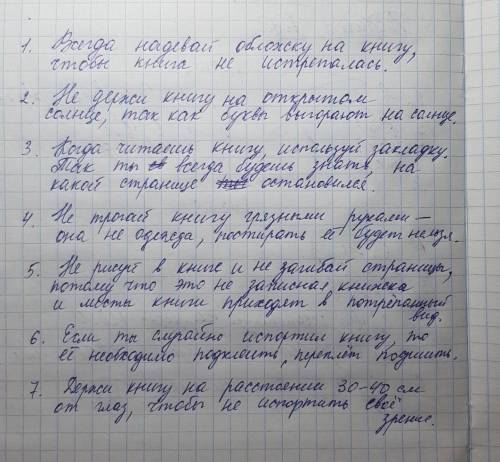 1. Всегда надевай обложку на книгу,
чтобы книга не истрепалась.
2. Не держи книгу на открытом
солнце, так как буквы выгорают на солнце.
3. Когда читаешь книгу, используй закладку.
Так ты всегда будешь знать, на
какой странице остановился.
4. Не трогай книгу грязными руками –
она не одежда, постирать её будет нельзя.
5. Не рисуй в книге и не загибай страницы,
потому что это не записная книжка
и листы книги приходят в потрёпанный
вид.
6. Если ты случайно испортил книгу, то
её необходимо подклеить, переплёт подшить.
7. Держи книгу на расстоянии 30-40 см
от глаз, чтобы не испортить своё
зрение.